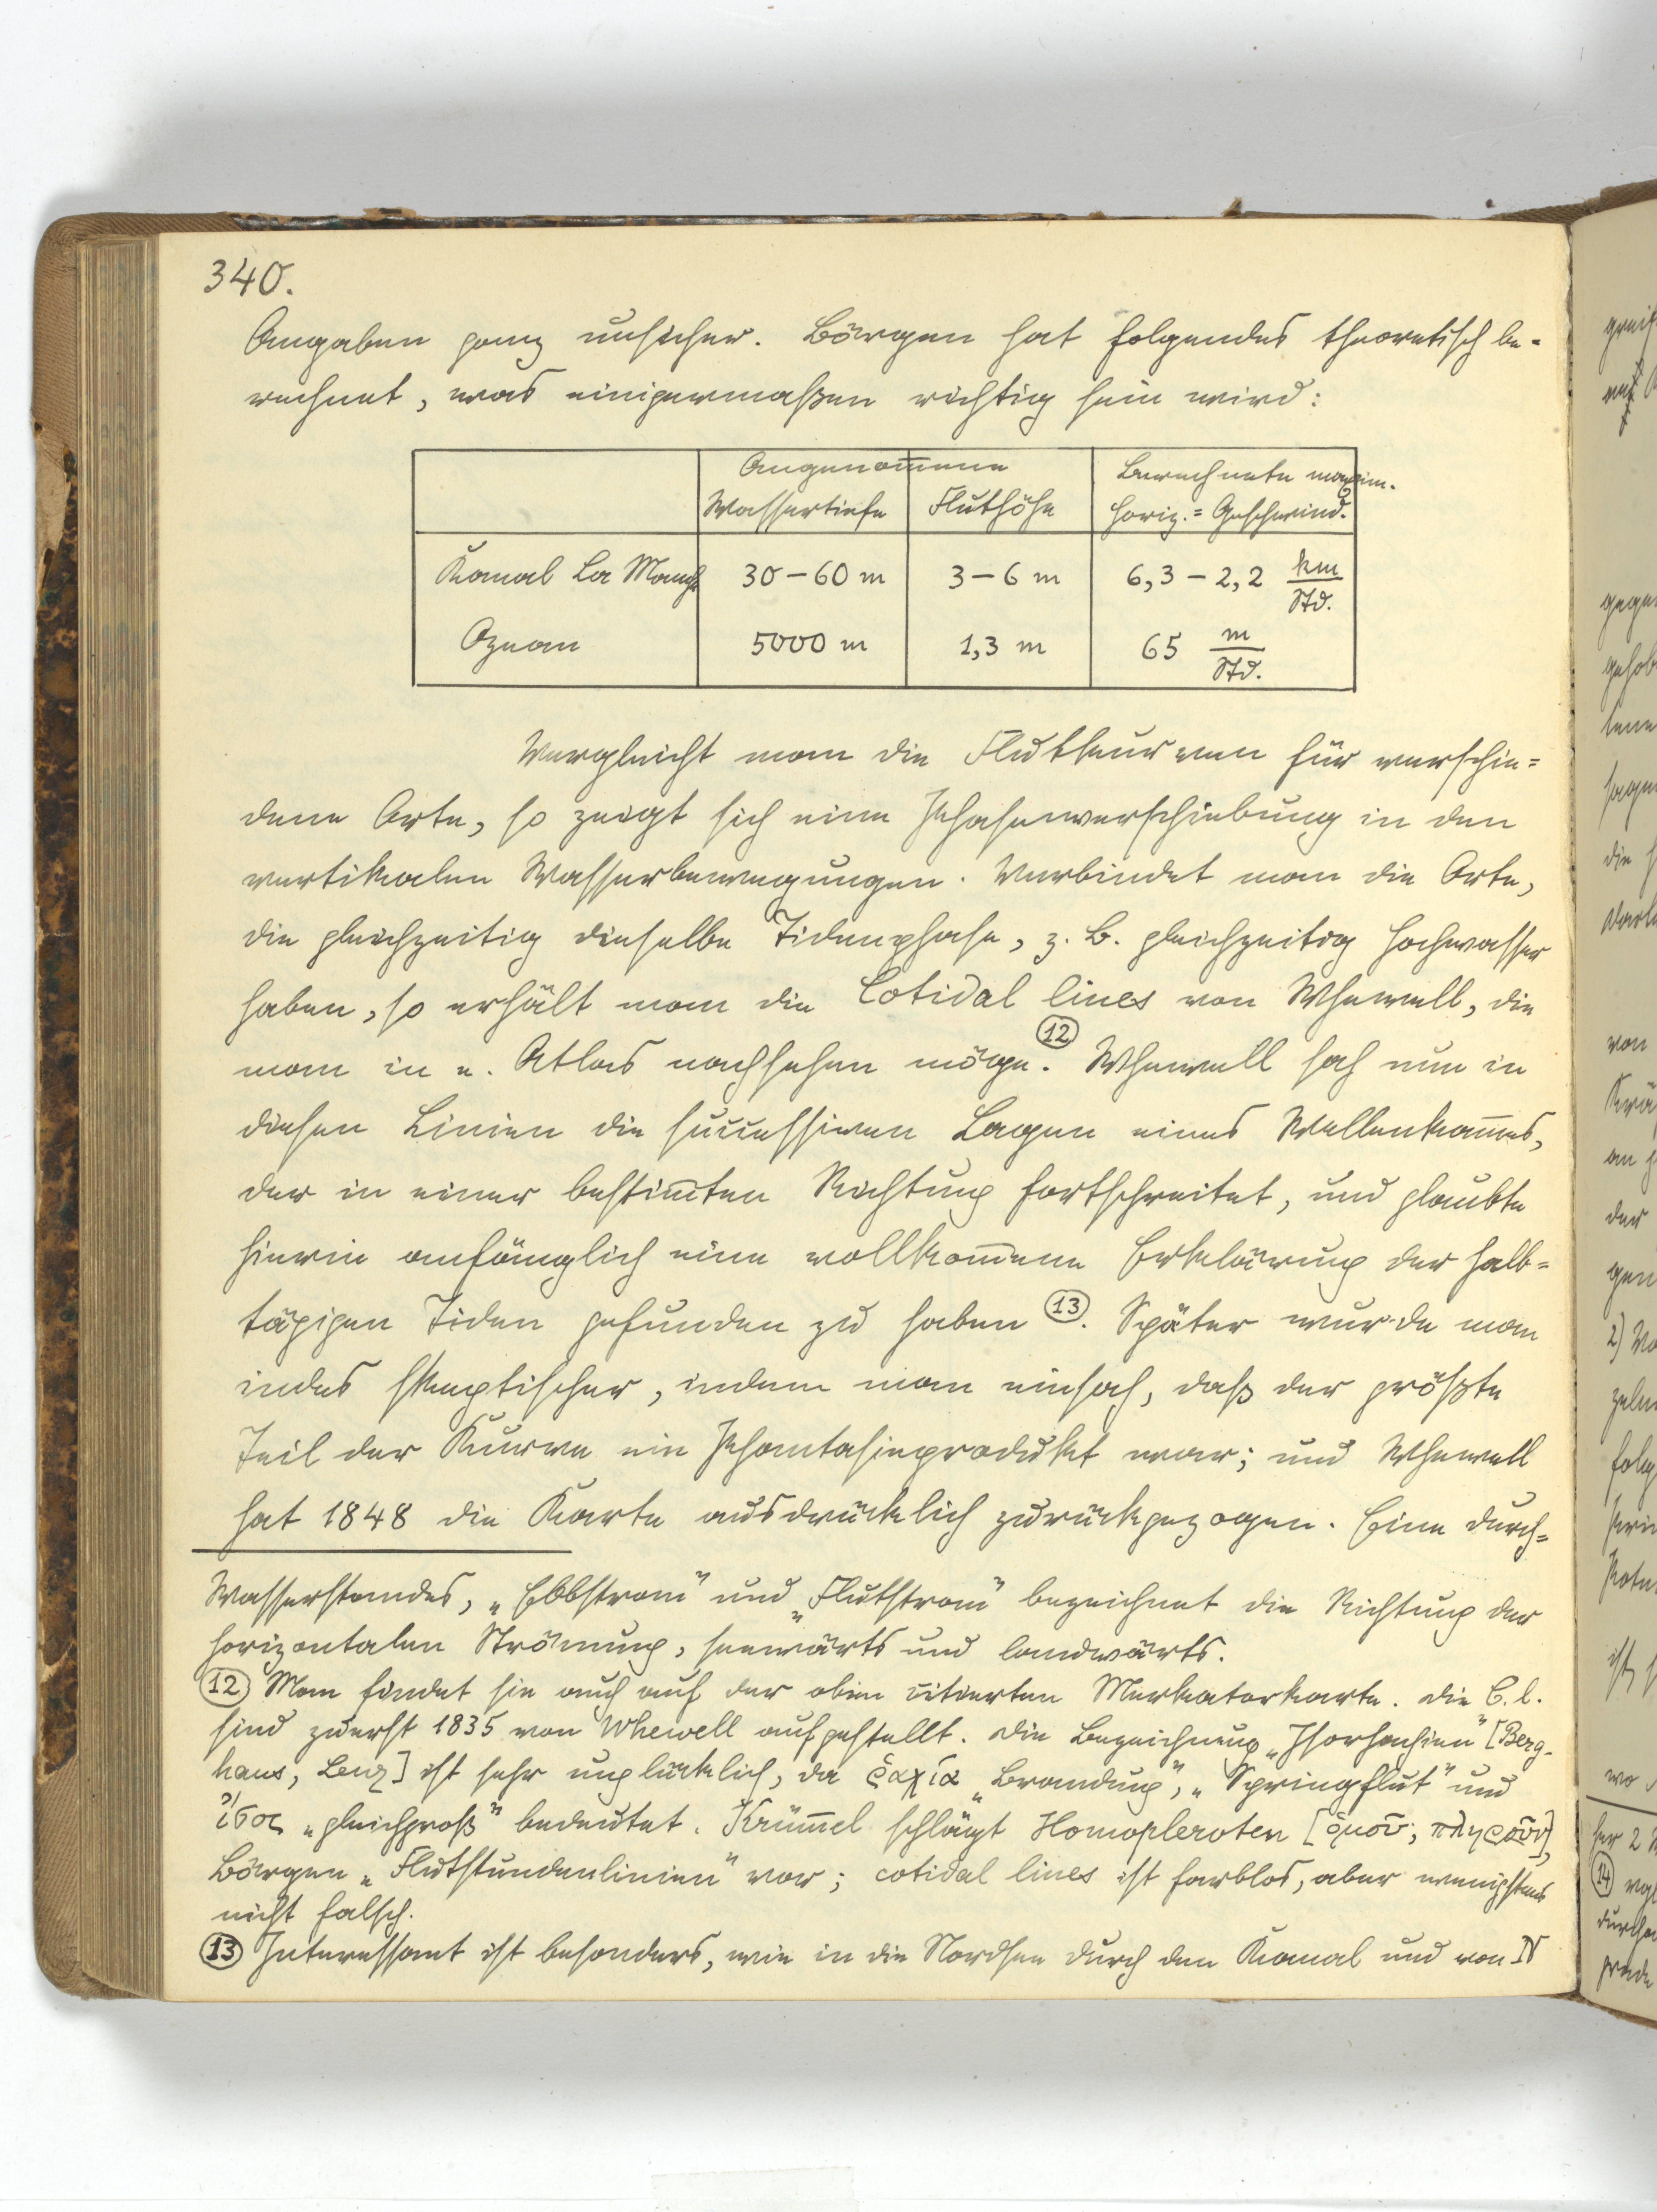 340.
Angaben ganz unsicher. Börgen hat folgendes theoretisch be-
rechnet, was einigermaßen richtig sein wird:
Angenom̅ene
Berechnete maxim.
Wassertiefe Fluthöhe horiz.= Geschwind.
Kanal La Manche 30–60 m 3–6 m 6,3–2,2 km/Std.
Ozean 5000 m 1,3 m 65 m/Std.
Vergleicht man die Flutkurven für verschie=
dene Orte, so zeigt sich eine Phasenverschiebung in den
vertikalen Wasserbewegungen. Verbindet man die Orte,
die gleichzeitig dieselbe Tidenphase, z. B. gleichzeitig Hochwasser
haben, so erhält man die Cotidal lines von Whewell, die
man in e. Atlas nachsehen möge. ⑫ Whewell sah nun in
diesen Linien die successiven Lagen eines Wellenkam̅es,
der in einer bestim̅ten Richtung fortschreitet, und glaubte
hierin anfänglich eine vollkom̅ene Erklärung der halb=
tägigen Tiden gefunden zu haben ⑬. Später wurde man
indes skeptischer, indem man einsah, daß der größte
Teil der Kurve ein Phantasieprodukt war; und Whewell
hat 1848 die Karte ausdrücklich zurückgezogen. Eine durch=
Wasserstandes, „Ebbstrom" und „Flutstrom" bezeichnet die Richtung der
horizontalen Strömung, seewärts und landwärts.
⑫ Man findet sie auch auf der oben citierten Merkatorkarte. Die C. l.
sind zuerst 1835 von Whewell aufgestellt. Die Bezeichnung „Isorhachien" [Berg-
haus, Lenz] ist sehr unglücklich, da ῥαχία „Brandung", „Springflut" und
ἴσος „gleichgroß" bedeutet. Krüm̅el schlägt Homopleroten [ὁμοῦ, πληροῦν],
Börgen „Flutstundenlinien" vor; cotidal lines ist farblos, aber wenigstens
nicht falsch.
⑬ Interessant ist besonders, wie in die Nordsee durch den Kanal und von N